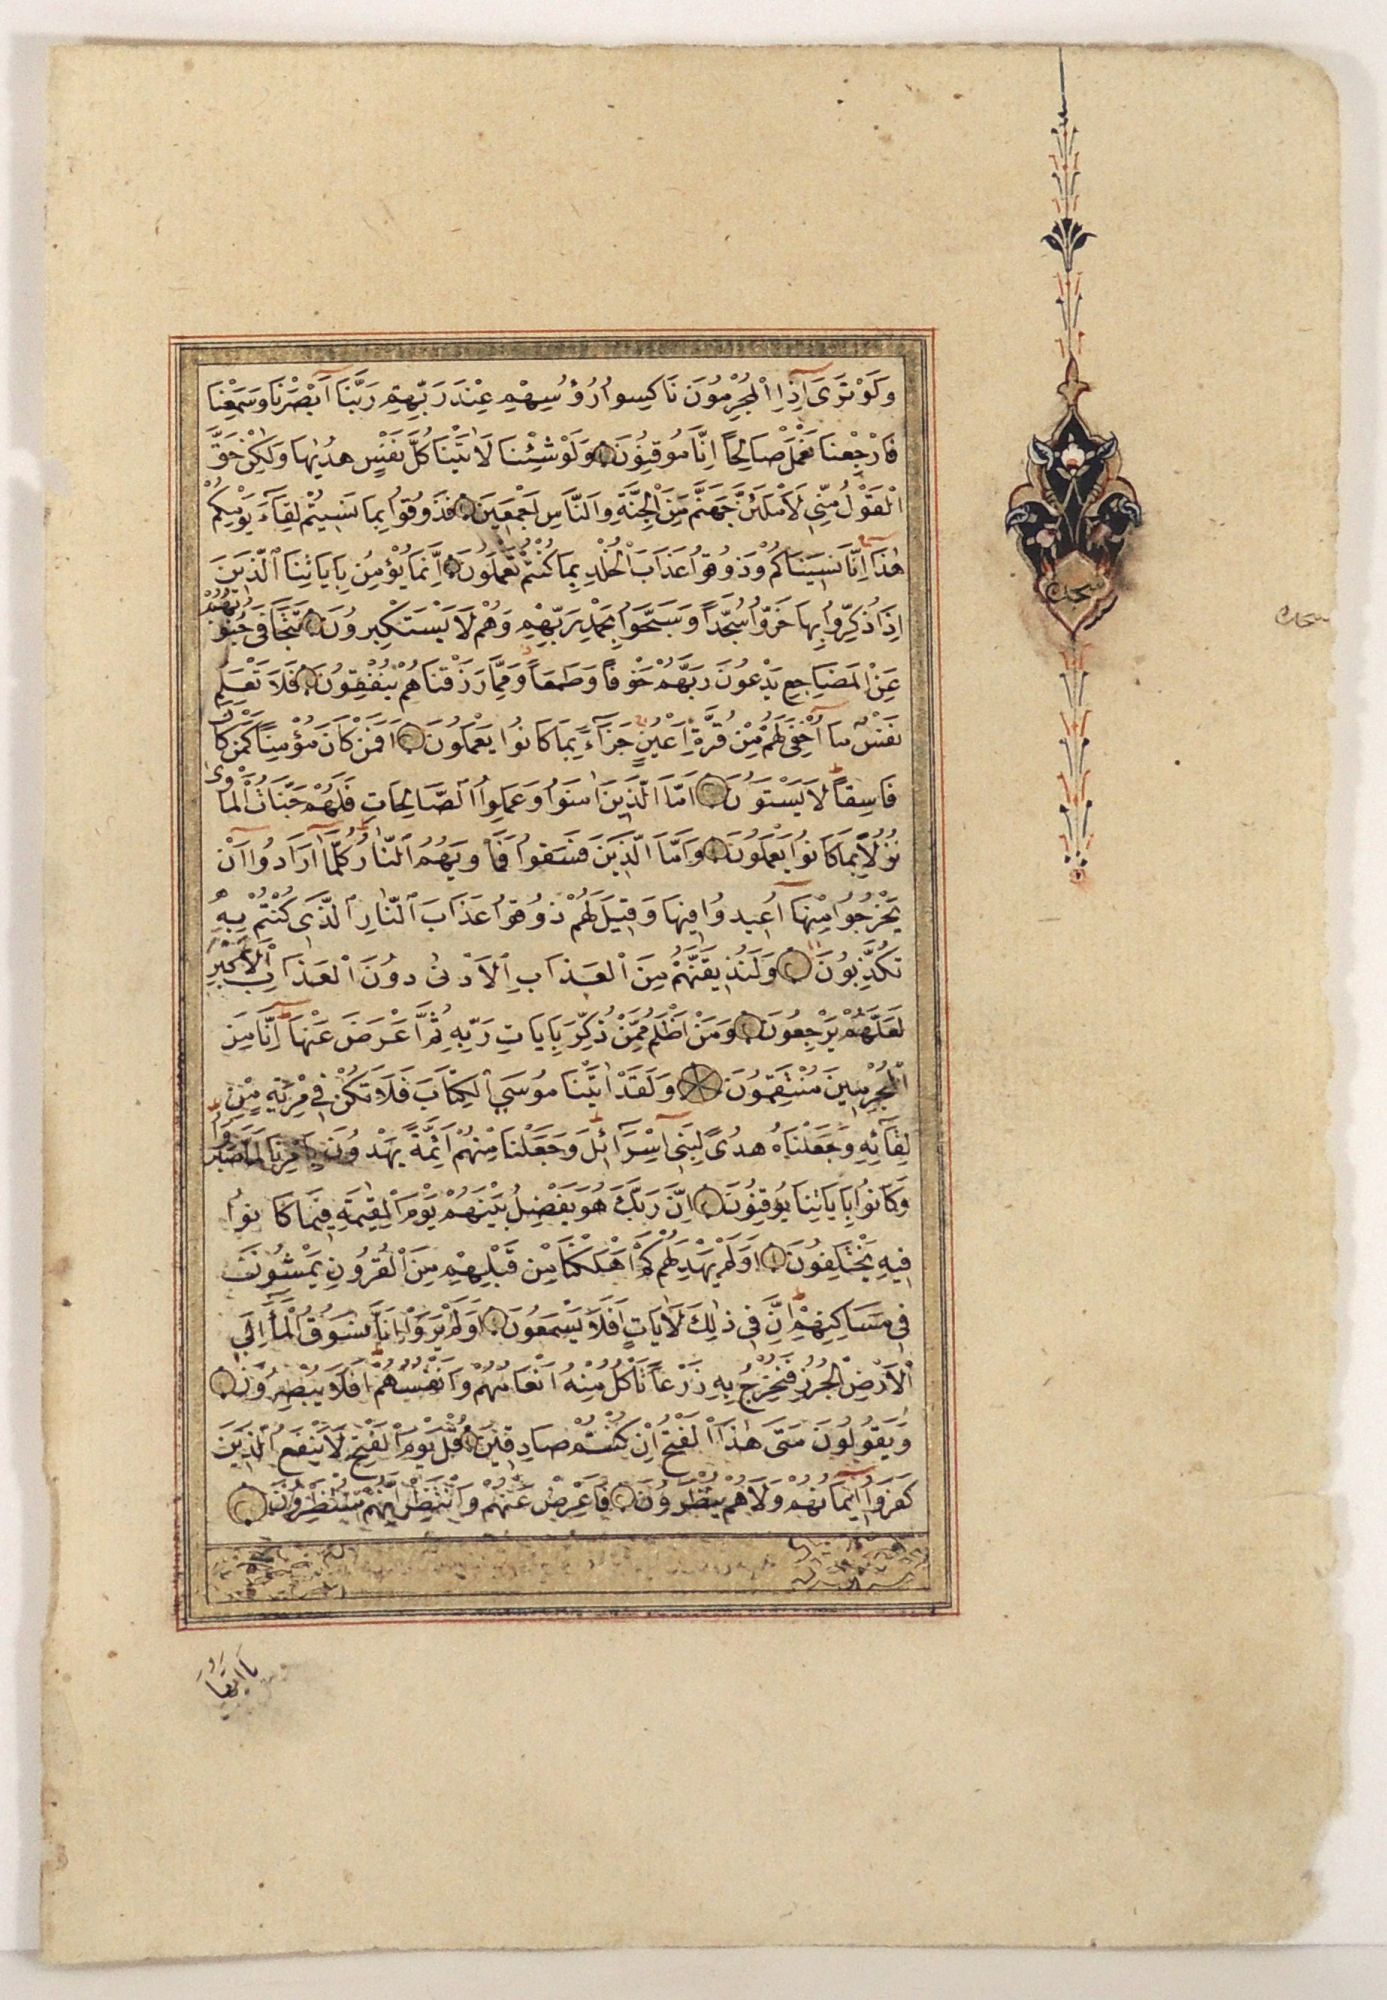 وَلَوْ تَرَىٰ اِذِ الْمُجْرِمُونَ نَاكِسُوا رُؤُسِهِمْ عِنْدَ رَبِّهِمْ رَبَّنَا اَبْصَرْنَا وَسَمِعْنَا
فَارْجِعْنَا نَعْمَلْ صَالِحاً اِنَّا مُوقِنُونَ وَلَوْ شِئْنَا لَاٰتَيْنَا كُلَّ نَفْسٍ هُدٰيهَا وَلٰكِنْ حَقَّ
الْقَوْلُ مِنِّي لَاَمْلَئَنَّ جَهَنَّمَ مِنَ الْجِنَّةِ وَالنَّاسِ اَجْمَعِينَ فَذُوقُوا بِمَا نَسِيتُمْ لِقَآءَ يَوْمِكُمْ
هٰذَا اِنَّا نَسِينَاكُمْ وَذُوقُوا عَذَابَ الْخُلْدِ بِمَا كُنْتُمْ تَعْمَلُونَ اِنَّمَا يُؤْمِنُ بِاٰيَاتِنَا الَّذِينَ
اِذَا ذُكِّرُوا بِهَا خَرُّوا سُجَّداً وَسَبَّحُوا بِحَمْدِ رَبِّهِمْ وَهُمْ لَا يَسْتَكْبِرُونَ تَتَجَافٰى جُنُوبُهُمْ
عَنِ الْمَضَاجِعِ يَدْعُونَ رَبَّهُمْ خَوْفاً وَطَمَعاً وَمِمَّا رَزَقْنَاهُمْ يُنْفِقُونَ فَلَا تَعْلَمُ
نَفْسٌ مَا اُخْفِيَ لَهُمْ مِنْ قُرَّةِ اَعْيُنٍ جَزَآءً بِمَا كَانُوا يَعْمَلُونَ اَفَمَنْ كَانَ مُؤْمِناً كَمَنْ كَانَ
فَاسِقاً لَا يَسْتَوُونَ اَمَّا الَّذِينَ اٰمَنُوا وَعَمِلُوا الصَّالِحَاتِ فَلَهُمْ جَنَّاتُ الْمَأْوٰى
نُزُلاً بِمَا كَانُوا يَعْمَلُونَ وَاَمَّا الَّذِينَ فَسَقُوا فَمَأْوٰيهُمُ النَّارُ كُلَّمَا اَرَادُوا اَنْ
يَخْرُجُوا مِنْهَا اُعِيدُوا فِيهَا وَقِيلَ لَهُمْ ذُوقُوا عَذَابَ النَّارِ الَّذِي كُنْتُمْ بِهِ
تُكَذِّبُونَ وَلَنُذِيقَنَّهُمْ مِنَ الْعَذَابِ الْاَدْنٰى دُونَ الْعَذَابِ الْاَكْبَرِ
لَعَلَّهُمْ يَرْجِعُونَ وَمَنْ اَظْلَمُ مِمَّنْ ذُكِّرَ بِاٰيَاتِ رَبِّهِ ثُمَّ اَعْرَضَ عَنْهَا اِنَّا مِنَ
الْمُجْرِمِينَ مُنْتَقِمُونَ وَلَقَدْ اٰتَيْنَا مُوسَى الْكِتَابَ فَلَا تَكُنْ فِي مِرْيَةٍ مِنْ
لِقَآئِهِ وَجَعَلْنَاهُ هُدًى لِبَنِي اِسْرَآئِلَ وَجَعَلْنَا مِنْهُمْ اَئِمَّةً يَهْدُونَ بِاَمْرِنَا لَمَّا صَبَرُوا
وَكَانُوا بِاٰيَاتِنَا يُوقِنُونَ اِنَّ رَبَّكَ هُوَ يَفْصِلُ بَيْنَهُمْ يَوْمَ الْقِيٰمَةِ فِيمَا كَانُوا
فِيهِ يَخْتَلِفُونَ اَوَلَمْ يَهْدِ لَهُمْ كَمْ اَهْلَكْنَا مِنْ قَبْلِهِمْ مِنَ الْقُرُونِ يَمْشُونَ
فِي مَسَاكِنِهِمْ اِنَّ فِي ذٰلِكَ لَاٰيَاتٍ اَفَلَا يَسْمَعُونَ اَوَلَمْ يَرَوْا اَنَّا نَسُوقُ الْمَآءَ اِلَى
الْاَرْضِ الْجُرُزِ فَنُخْرِجُ بِهِ زَرْعاً تَأْكُلُ مِنْهُ اَنْعَامُهُمْ وَاَنْفُسُهُمْ اَفَلَا يُبْصِرُونَ
وَيَقُولُونَ مَتٰى هٰذَا الْفَتْحُ اِنْ كُنْتُمْ صَادِقِينَ قُلْ يَوْمَ الْفَتْحِ لَا يَنْفَعُ الَّذِينَ
كَفَرُوا اِيمَانُهُمْ وَلَا هُمْ يُنْظَرُونَ فَاَعْرِضْ عَنْهُمْ وَانْتَظِرْ اِنَّهُمْ مُنْتَظِرُونَ